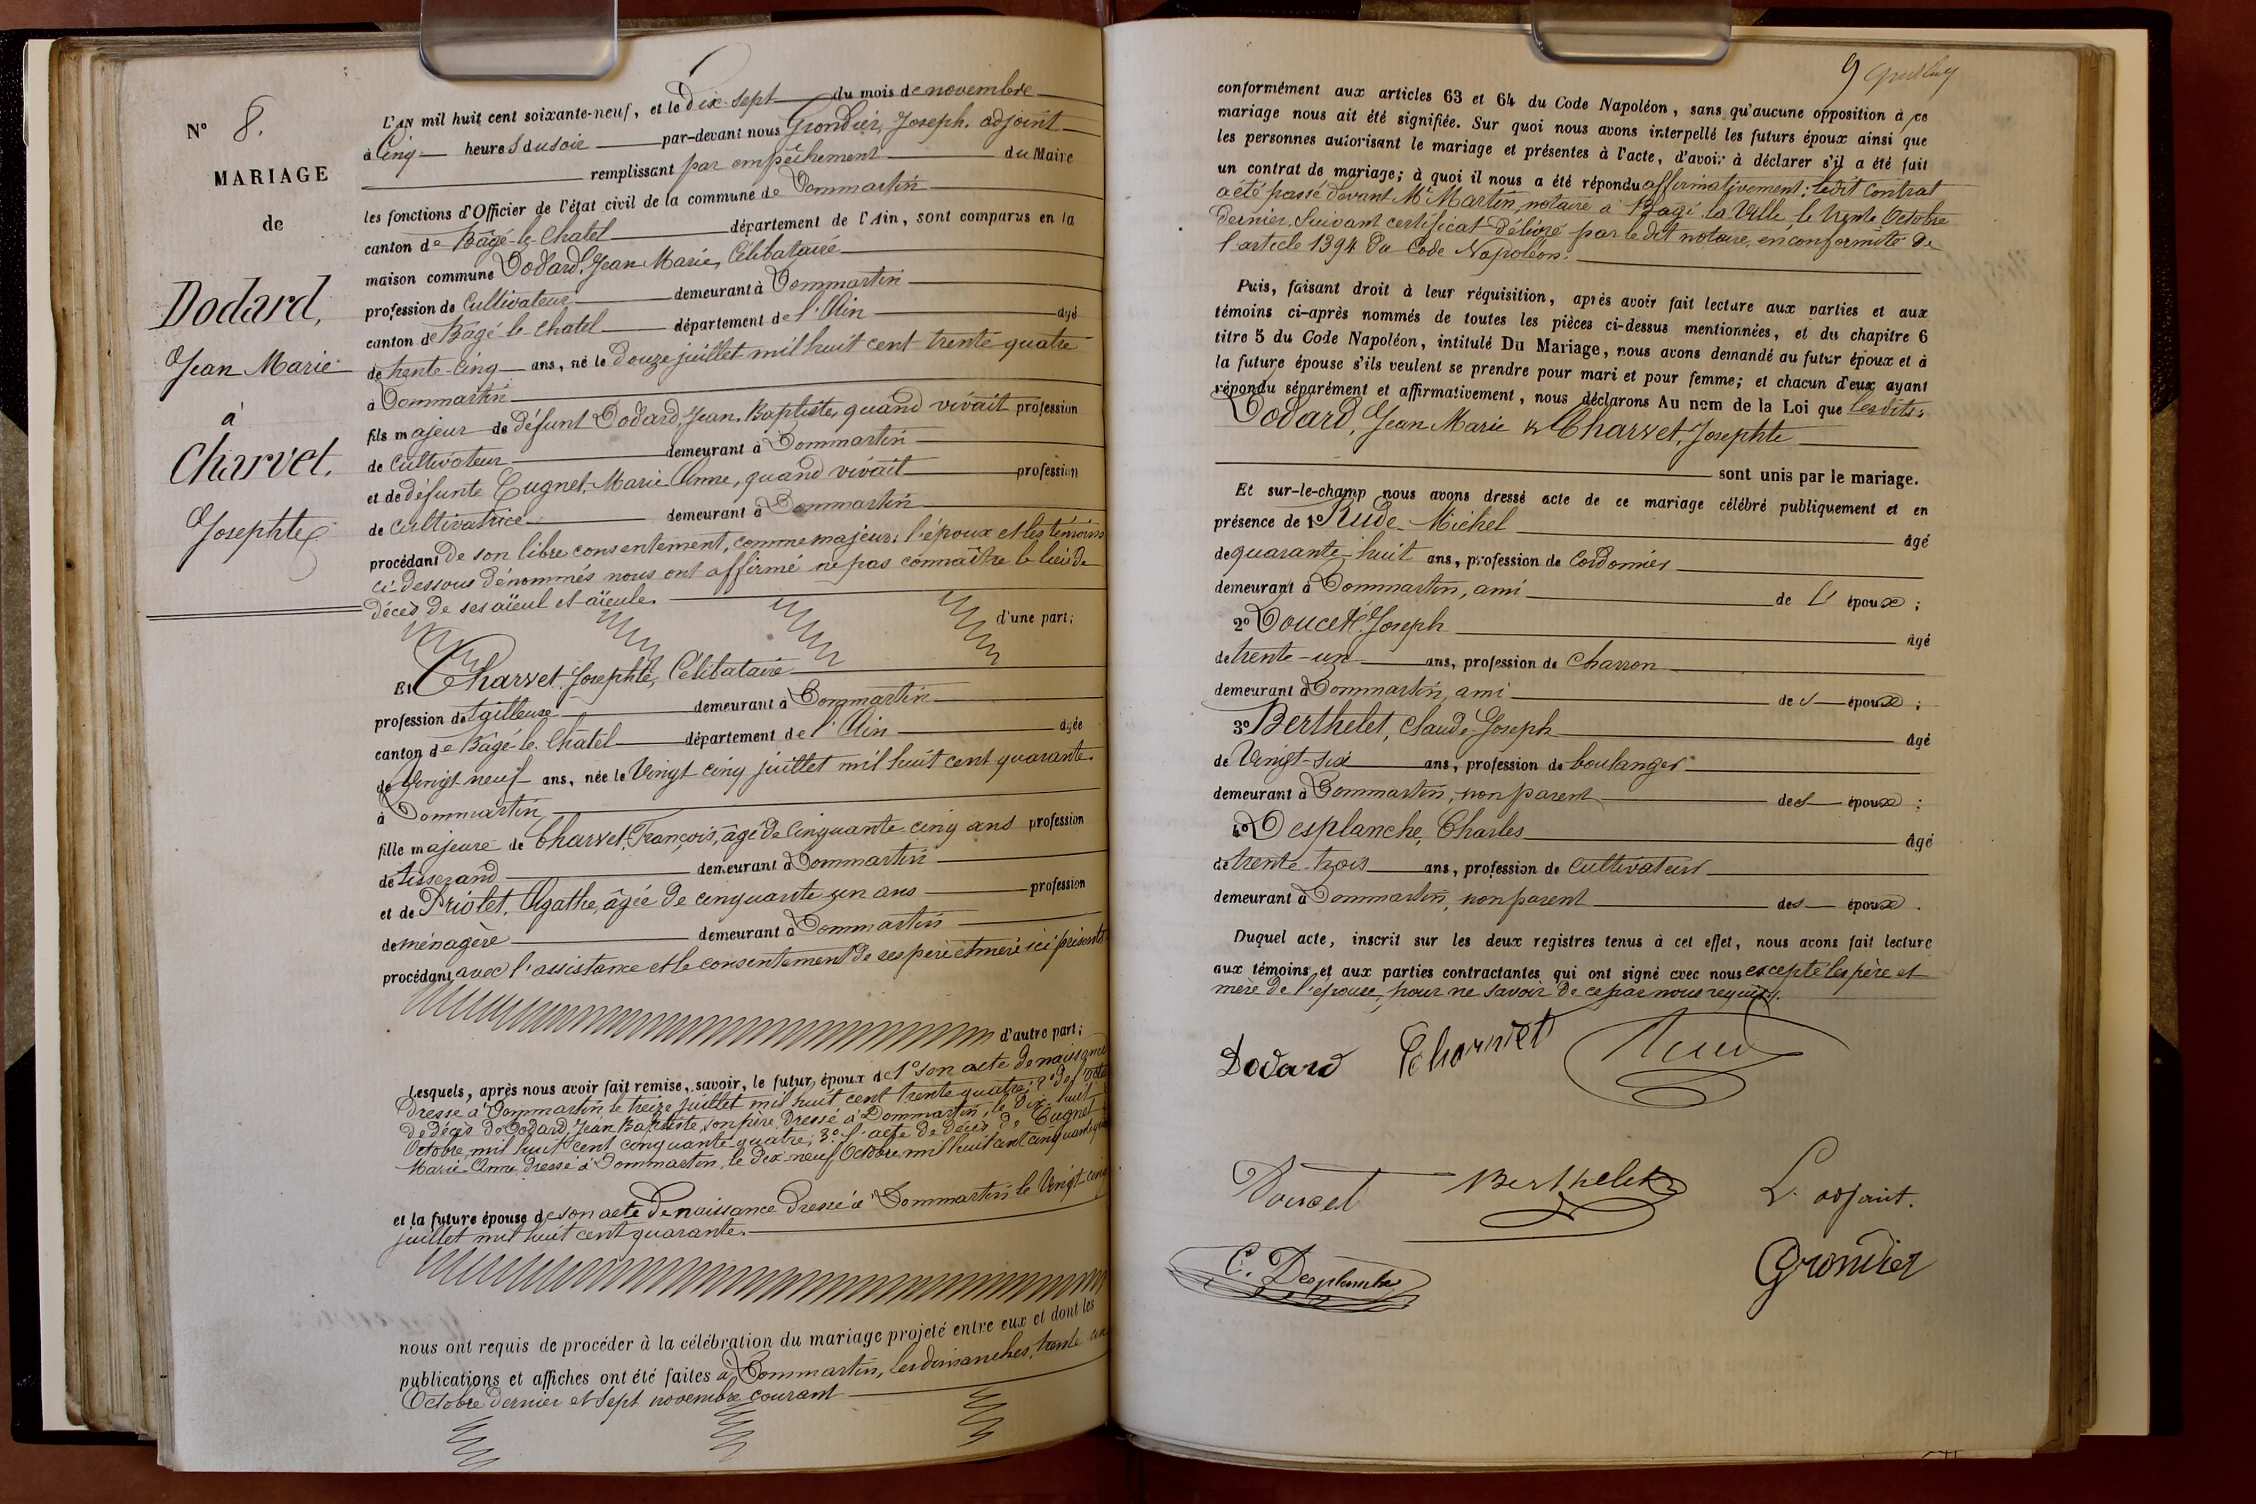 N° 8.
MARIAGE
de
Dodard,
Jean Marie
à
Charvet,
Josephte
L'AN mil huit cent soixante-neuf, et le Dix-Sept du mois de novembre
à Cinq heures du soir par-devant nous Grondier, Joseph, adjoint
remplissant par empêchement du Maire
les fonctions d'Officier de l'état civil de la commune de Dommartin
canton de Bâgé-le-Chatel département de l'Ain, sont comparus en la
maison commune Dodard, Jean Marie, Célibataire
profession de Cultivateur demeurant à Dommartin
canton de Bâgé-le-Chatel département de l'Ain âgé
de trente-cinq ans, né le Douze juillet mil huit cent trente quatre
à Dommartin
fils majeur de défunt Dodard, Jean-Baptiste, quand vivait profession
de Cultivateur demeurant à Dommartin
et de défunte Cugnet, Marie-Anne, quand vivait profession
de cultivatrice demeurant à Dommartin
procédant de son libre consentement, comme majeur; l'époux et les témoins
ci-dessous dénommés nous ont affirmé ne pas connaître le lieu de
décès de ses aïeul et aïeule. d'une part;
Et Charvet, Josephte, Célibataire
profession de tailleuse demeurant à Dommartin
canton de Bâgé-le-Châtel département de l'Ain âgée
de Vingt neuf ans, née le Vingt cinq juillet mil huit cent quarante
à Dommartin
fille majeure de Charvet, François, âgé de Cinquante-cinq ans profession
de tisserand demeurant à Dommartin
et de Priolet, Agathe, âgée de cinquante un ans profession
de ménagère demeurant à Dommartin
procédant avec l'assistance et le consentement de ses père et mère ici présents
d'autre part;
Lesquels, après nous avoir fait remise, savoir, le futur époux de 1° son acte de naissance
Dressé à Dommartin le treize juillet mil huit cent trente quatre; 2° de l'acte
de décès de Dodard, Jean Baptiste, son père, Dressé à Dommartin, le Dix-huit
Octobre mil huit cent cinquante quatre; 3° l'acte de décès de Cugnet
Marie-Anne, dressé à Dommartin, le dix-neuf Octobre mil huit cent cinquante
et la future épouse de son acte de naissance Dressé à Dommartin le Vingt-cinq
juillet mil huit cent quarante.
nous ont requis de procéder à la célébration du mariage projeté entre eux et dont les
publications et affiches ont été faites à Dommartin, les dimanches, trente un
Octobre dernier et sept novembre courant
9
conformément aux articles 63 et 64 du Code Napoléon, sans qu'aucune opposition à ce
mariage nous ait été signifiée. Sur quoi nous avons interpellé les futurs époux ainsi que
les personnes autorisant le mariage et présentes à l'acte, d'avoir à déclarer s'il a été fait
un contrat de mariage; à quoi il nous a été répondu affirmativement; ledit contrat
a été passé devant Me Martin, notaire à Bagé-la-Ville, le trente Octobre
dernier, Suivant certificat délivré par le dit notaire, en conformité de
l'article 1394 du Code Napoléon.
Puis, faisant droit à leur réquisition, après avoir fait lecture aux parties et aux
témoins ci-après nommés de toutes les pièces ci-dessus mentionnées, et du chapitre 6
titre 5 du Code Napoléon, intitulé Du Mariage, nous avons demandé au futur époux et à
la future épouse s'ils veulent se prendre pour mari et pour femme; et chacun d'eux ayant
répondu séparément et affirmativement, nous déclarons Au nom de la Loi que lesdits
Dodard, Jean Marie & Charvet, Josephte
sont unis par le mariage.
Et sur-le-champ nous avons dressé acte de ce mariage célébré publiquement et en
présence de 1° Rude Michel âgé
de quarante-huit ans, profession de Cordonnier
demeurant à Dommartin, ami de l'époux;
2° Doucet, Joseph âgé
de trente-un ans, profession de Charron
demeurant à Dommartin, ami des époux;
3° Berthelet, Claude-Joseph âgé
de Vingt-six ans, profession de boulanger
demeurant à Dommartin, non parent des époux;
4° Desplanche, Charles âgé
de trente-trois ans, profession de Cultivateur
demeurant à Dommartin, non parent des époux.
Duquel acte, inscrit sur les deux registres tenus à cet effet, nous avons fait lecture
aux témoins et aux parties contractantes qui ont signé avec nous excepté les père et
mère de l'épouse, pour ne savoir de ce par nous requis.
Dodard Charvet Rude
Doucet Berthelet L'adjoint.
C. Desplanche Grondier